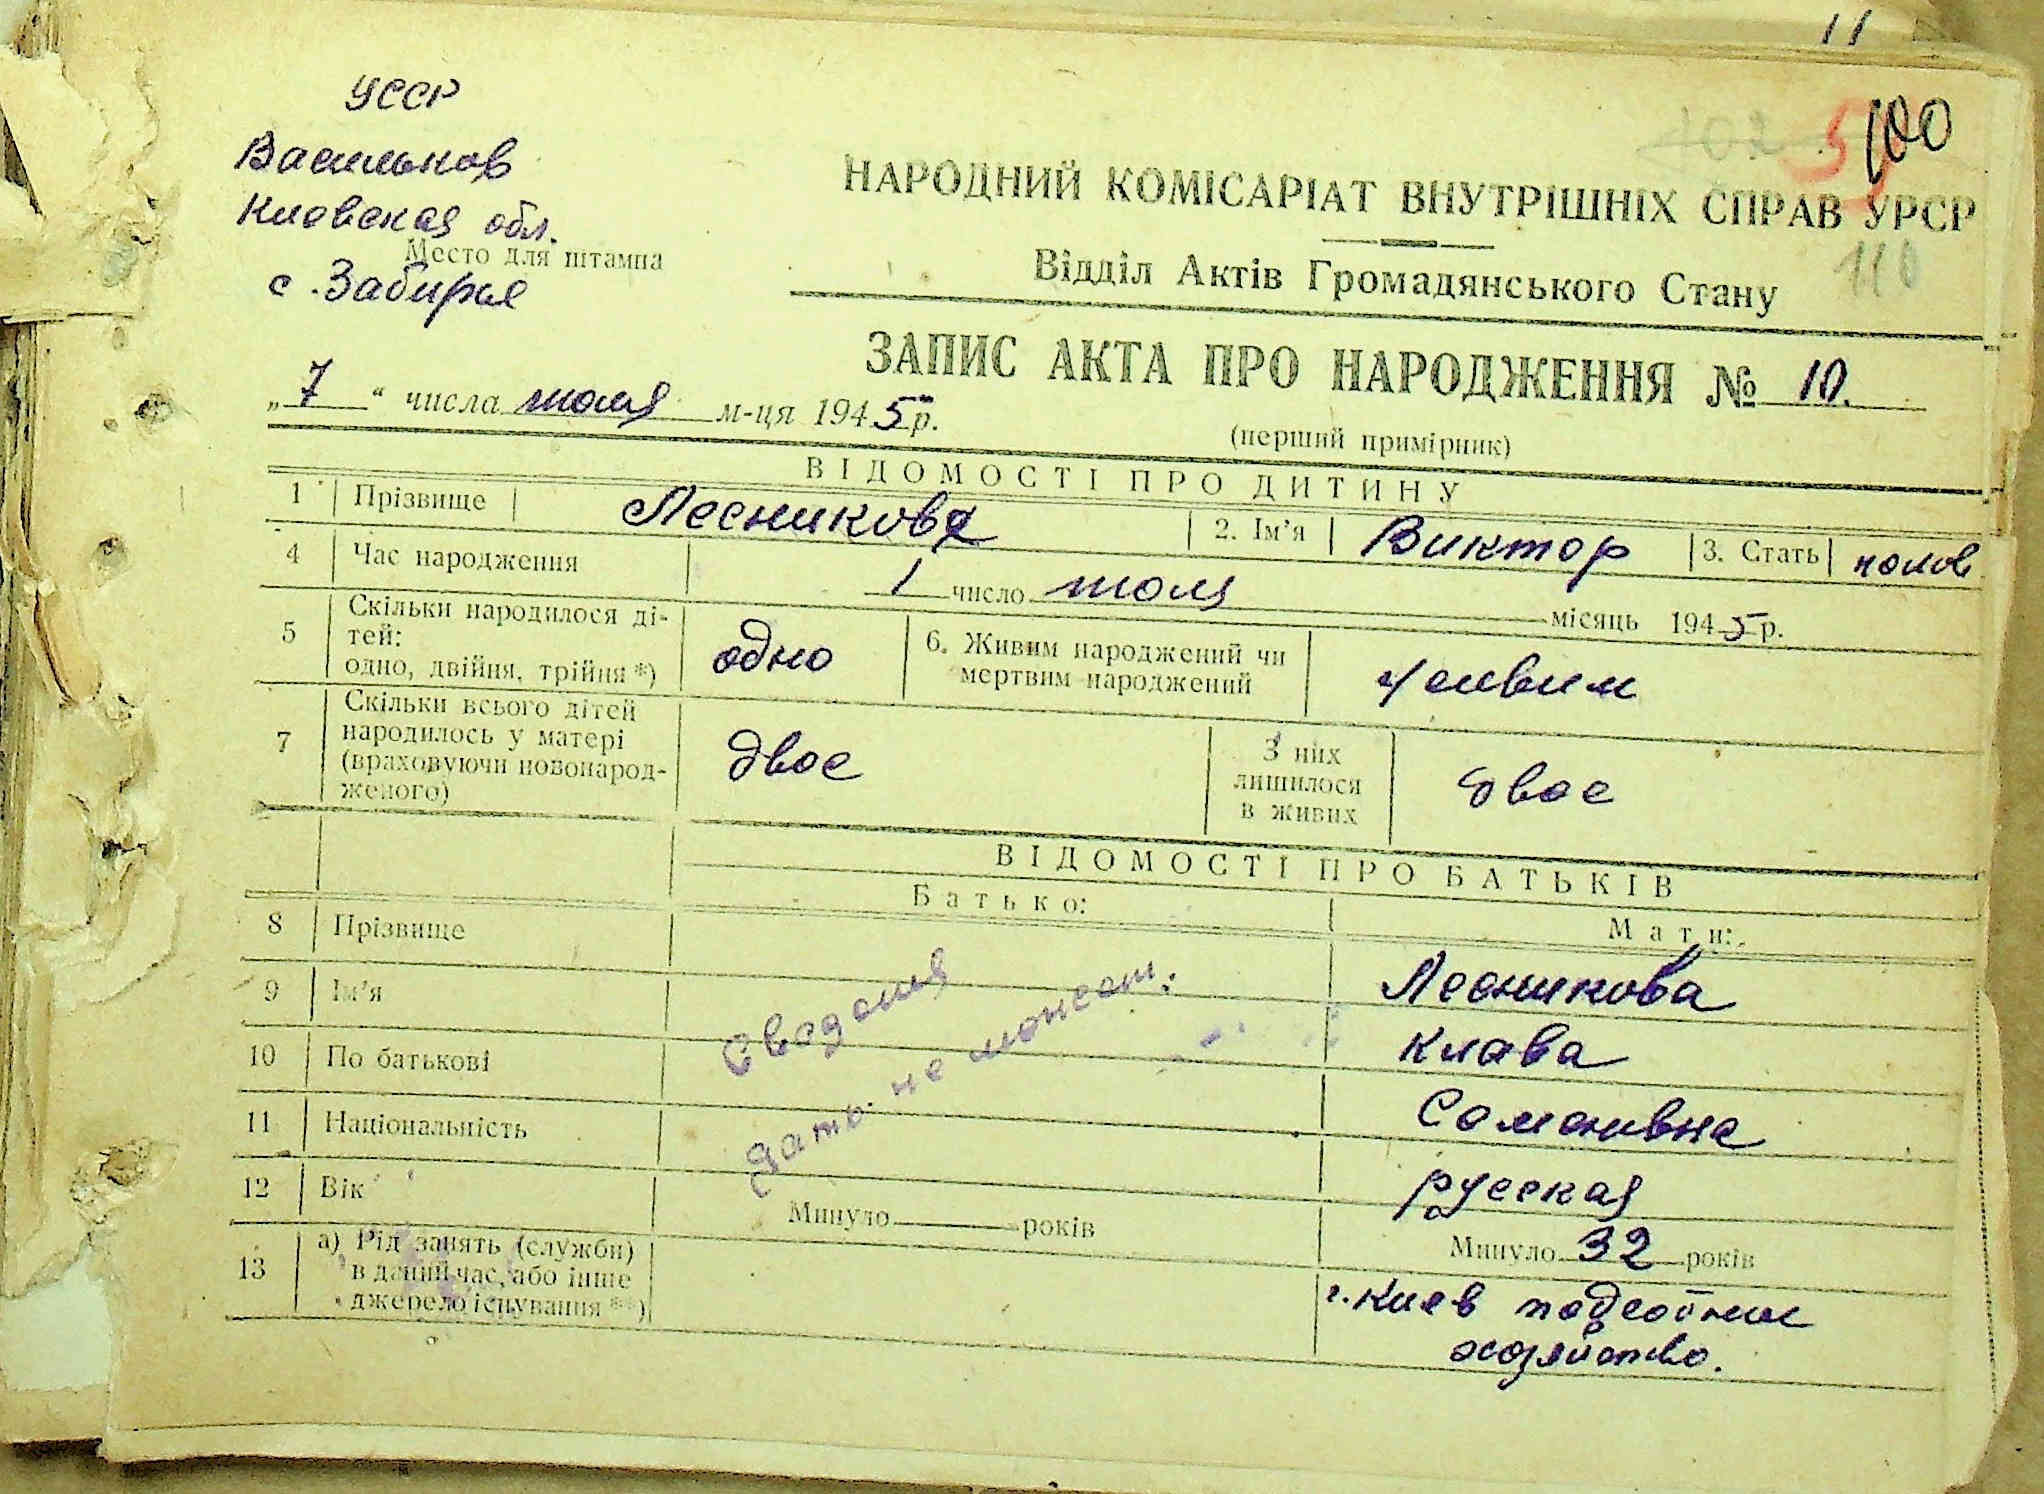 11
УССР
Васильков
Киевская обл.
Место для штампа
с. Забирье
102 100
НАРОДНИЙ КОМІСАРІАТ ВНУТРІШНІХ СПРАВ УРСР
110
Відділ Актів Громадянського Стану
ЗАПИС АКТА ПРО НАРОДЖЕННЯ № 10.
„7“ числа июля м-ця 1945 р.
(перший примірник)
ВІДОМОСТІ ПРО ДИТИНУ
1 Прізвище Лесникова 2. Ім'я Виктор 3. Стать
4 Час народження 1 число июля місяць 1945 р.
5 Скільки народилося ді-
тей:
одно, двійня, трійня *) одно 6. Живим народжений чи
мертвим народжений живим
7 Скільки всього дітей
народилось у матері
(враховуючи новонарод-
женого) двое З них
лишилося
в живих двое
ВІДОМОСТІ ПРО БАТЬКІВ
Батько: Мати:
8 Прізвище Лесникова
9 Ім'я Сведения Клава
10 По батькові дать не может. Семенивна
11 Національність русская
12 Вік Минуло років Минуло 32 років
13 а) Рід занять (служби)
в даний час, або інше
джерело існування **) г. Киев подсобним
хозяйство.